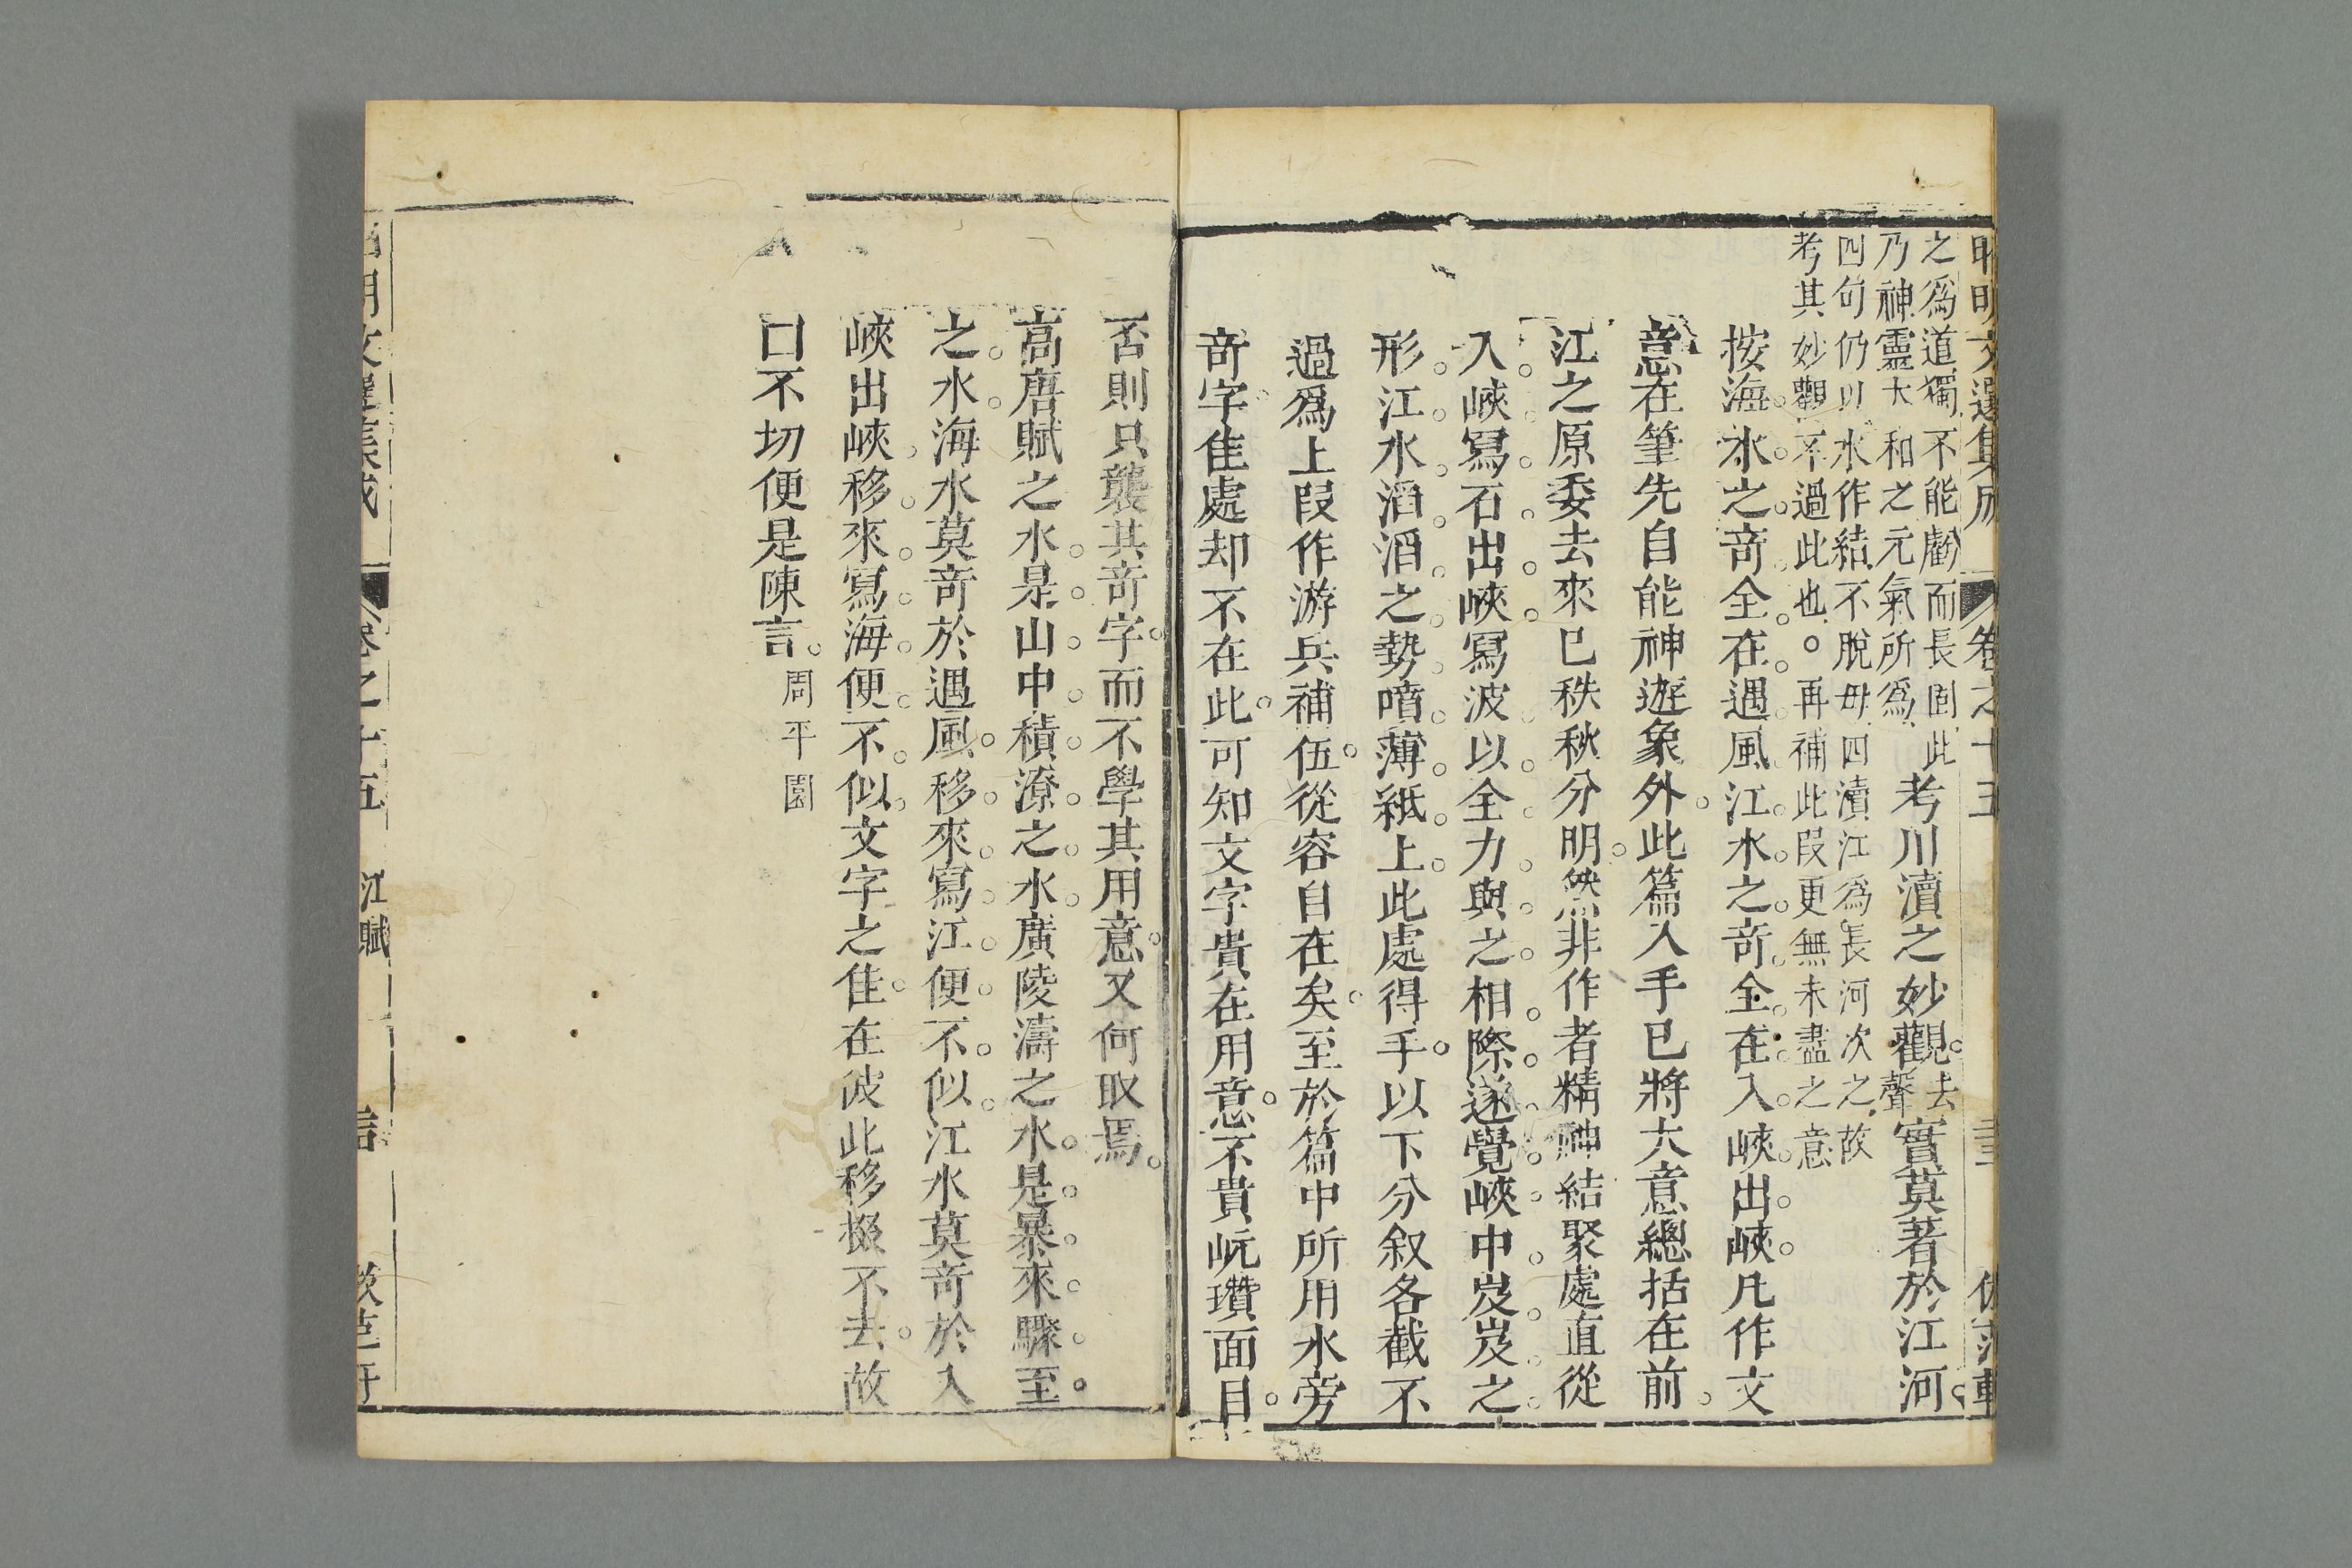 昭明文選集成 卷之十五
之爲道獨不能虧而長固此
乃神靈大和之元氣所爲
考川瀆之妙觀去聲實莫著於江河
四句仍以水作結不脫毋四瀆江爲長河次之故
考其妙觀不過此也○再補此段更無未盡之意
按海水之奇全在遇風江水之奇全在入峽出峽凡作文
意在筆先自能神遊象外此篇入手已將大意總括在前
江之原委去來已秩秩分明然非作者精神結聚處直從
入峽寫石出峽寫波以全力與之相際遂覺峽中岌岌之
形江水滔滔之勢噴薄紙上此處得手以下分叙各截不
過爲上段作游兵補伍從容自在矣至於篇中所用水旁
奇字佳處却不在此可知文字貴在用意不貴岏瓚面目
否則只襲其奇字而不學其用意又何取焉
高唐賦之水是山中積潦之水廣陵濤之水是暴來驟至
之水海水莫奇於遇風移來寫江便不似江水莫奇於入
峽出峽移來寫海便不似文字之佳在彼此移掇不去故
口不切便是陳言周平園
昭明文選集成 卷之十五 江賦